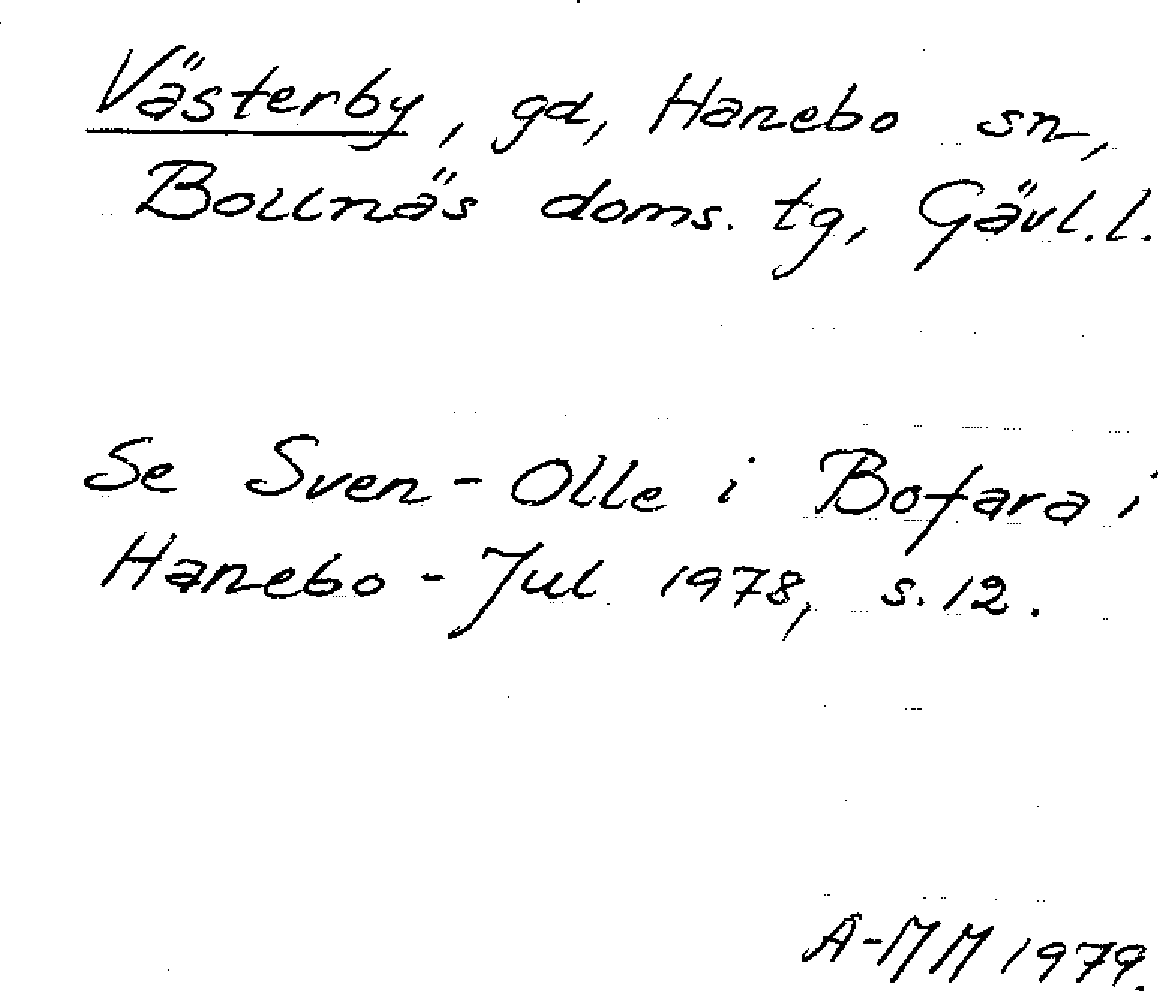 Västerby, gd, Hanebo sn,
Bollnäs doms. tg, Gävl. l.
Se Sven-Olle i Bofara i
Hanebo - Jul 1978, s. 12.
A-MM 1979.